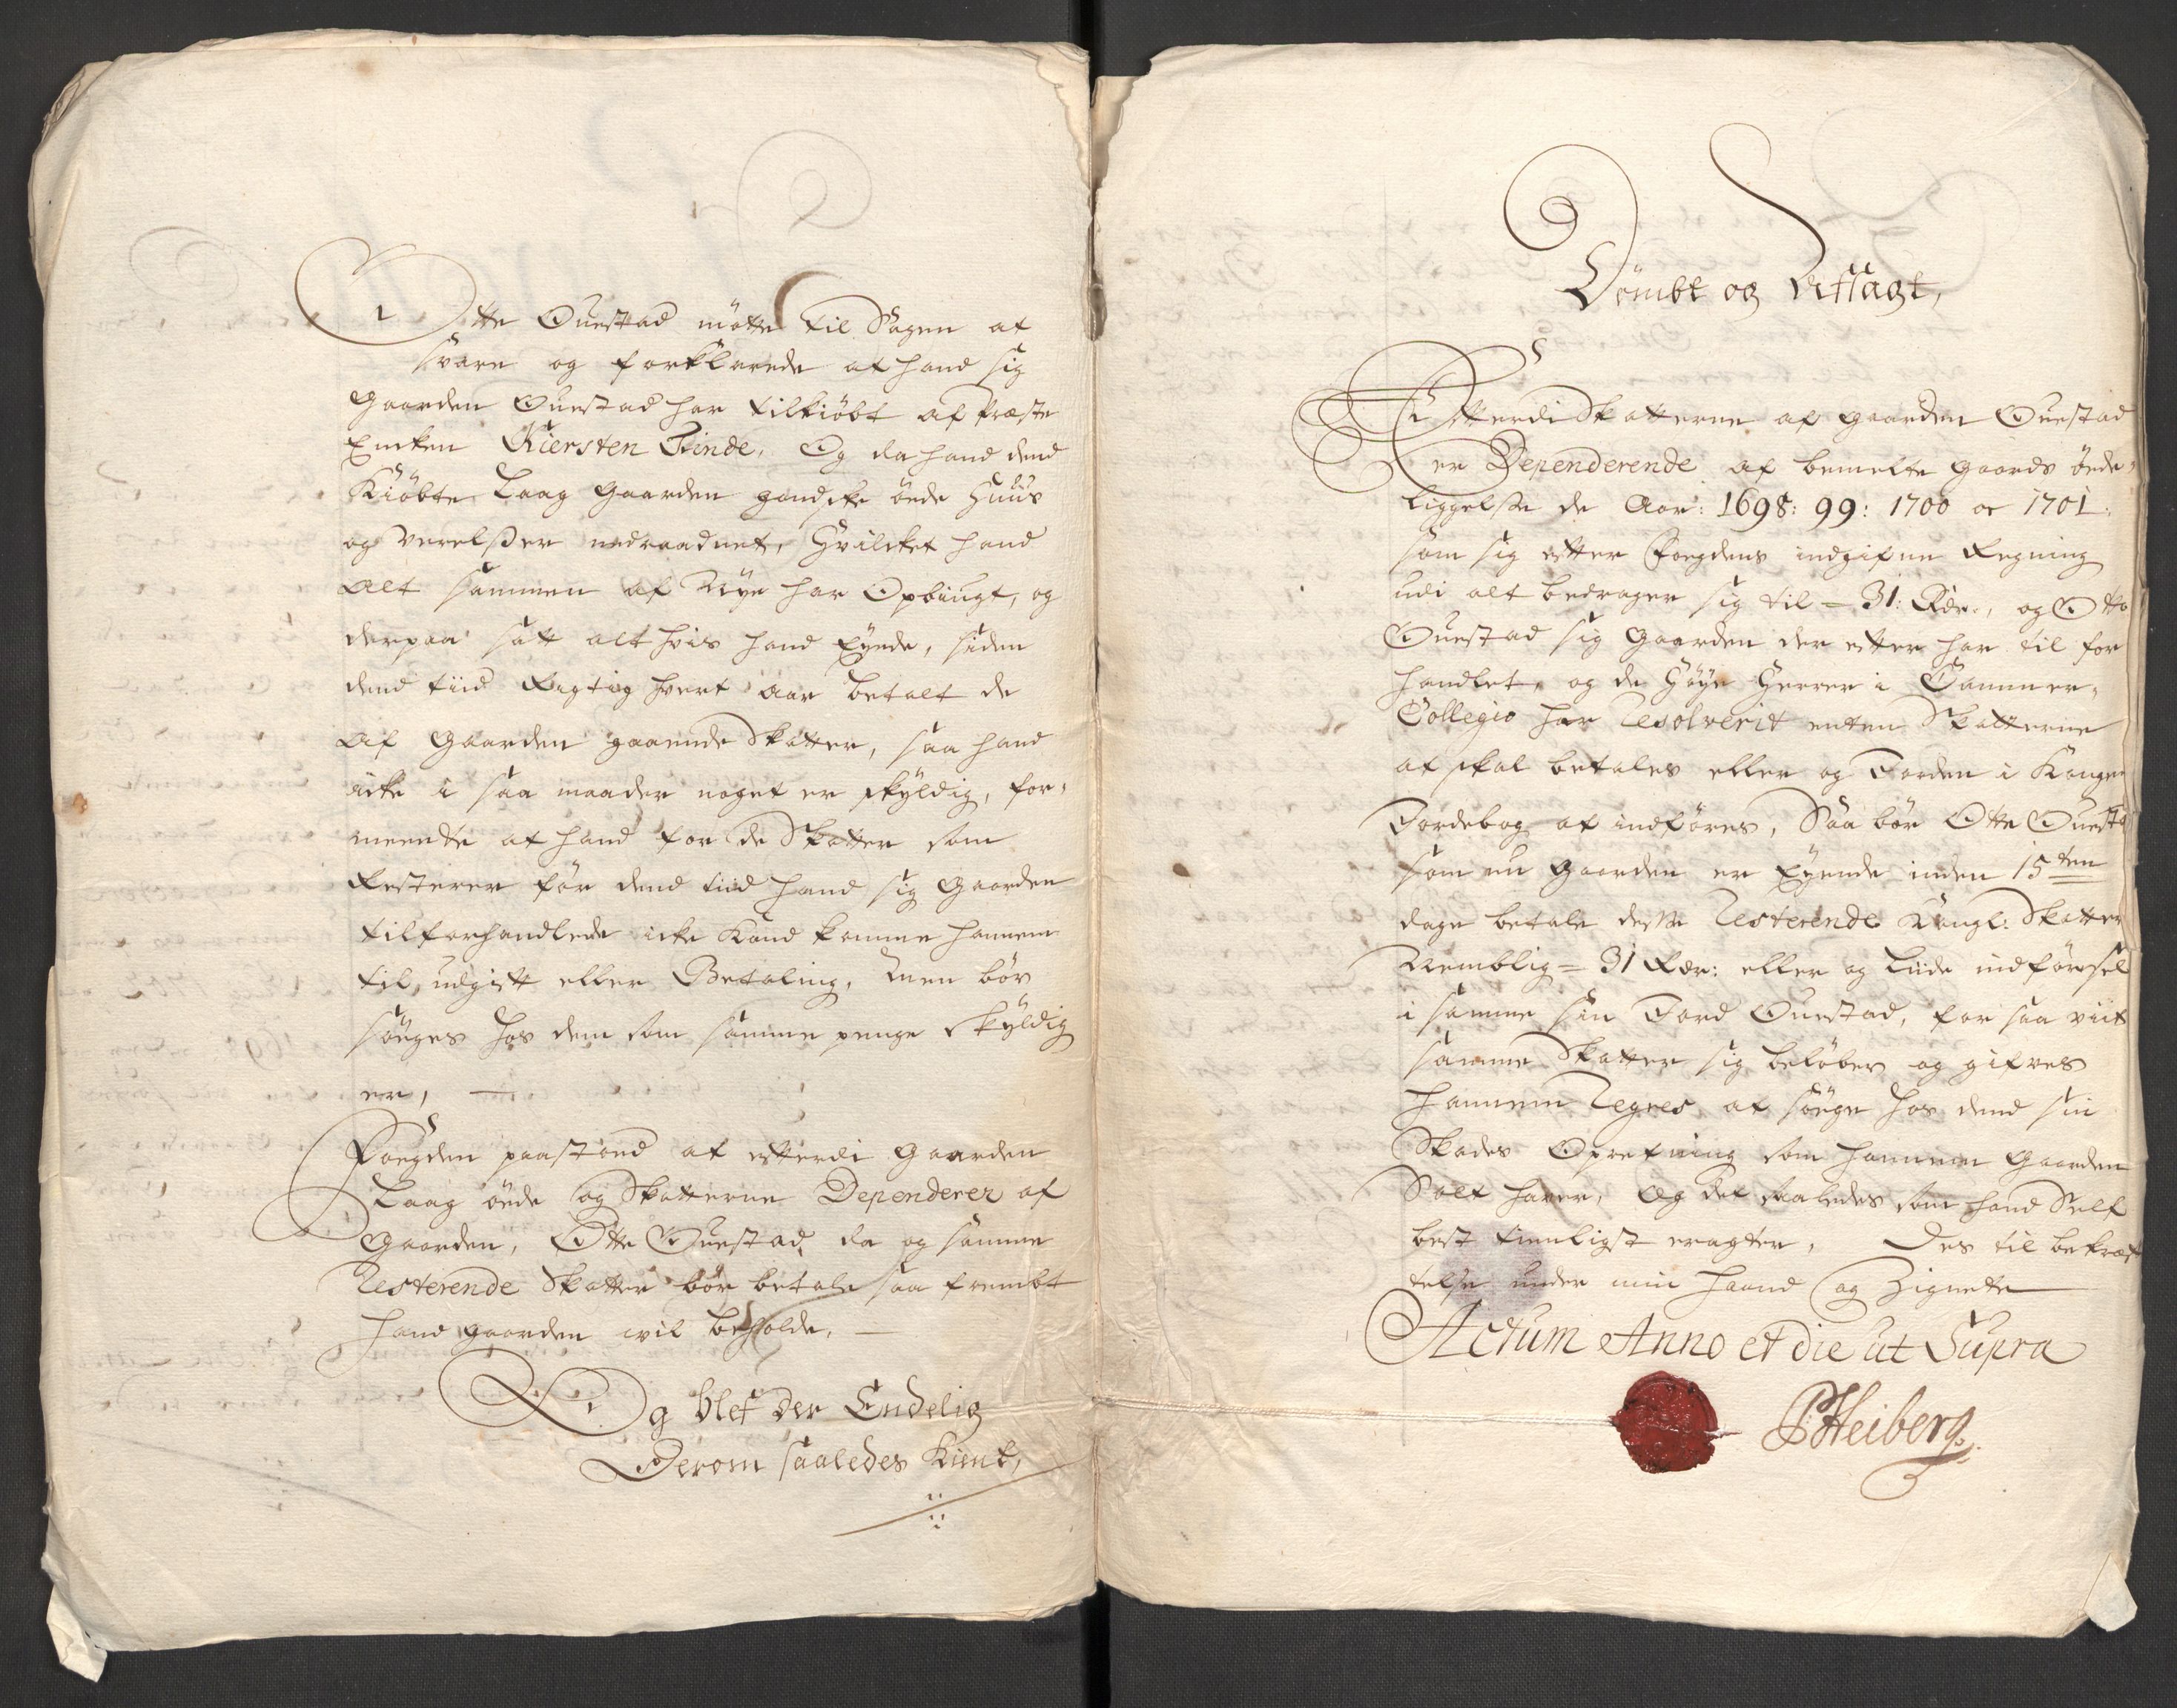 Otte Ouestad mötte til Sagen at
svare og forklarede at hand sig
Gaarden Ouestad har tilkiöbt af Præste
Encken Kiersten Finde, Og da hand dend
Kiöbte Laag Gaarden gandske öede Huus
og verelßer nedraadnet, Hvilcket hand
alt sammen af Nye har Opbiugt, og
derpaa satt alt hvis hand Eyede, siden
dend tiid Rigtig hvert aar betalt de
af Gaarden gaaende Skatter, saa hand
icke i saa maader noget er skyldig, for-
meente at hand for de Skatter som
Resterer för dend tiid hand sig Gaarden
tilforhandlede icke Kand komme hannem
til udgift eller Betaling, Men bör
söeges hos dem som samme penge skyldig
er,
Fogden paastoed at efterdi Gaarden
Laag öede og Skatterne Dependerer af
Gaarden, Otte Ouestad da og samme
Resterende Skatter bör betale saa frembt
hand gaarden vil beholde,
Og blef der Endelig
Derom saaledes Kient,
Dömbt og Afsagt,
Efterdi Skatterne af gaarden Ouestad
er Dependerende af bemelte gaards öede-
liggelße de Aar: 1698: 99: 1700 oc 1701:
som sig efter Fogdens indgifne Regning
udi alt bedrager sig til = 31: Rdr:, og Otte
Ouestad sig Gaarden der efter har til for
handlet, og de Höye Herrer i Cammer-
Collegio har Resolverit enten Skatterne
at skal betales eller og Jorden i Kongens
Jordebog at indföres, Saa bör Otte Ouestad
som nu Gaarden er Eyende inden 15ten
dage betale desse Resterende Kongl: Skatter
Nemblig = 31 Rdr: eller og Liide indförsel
i samme sin Jord Ouestad, for saa viit
samme Skatter sig belöber og gifves
hannem Regres at söege hos dend sin
Skades Opretning som hannem Gaarden
Solt hafver, Og det saaledes som hand Self
best tienligst eragter, Des til bekræf
telse under min Haand og Zignete
Actum Anno et die ut Supra
P Heiberg